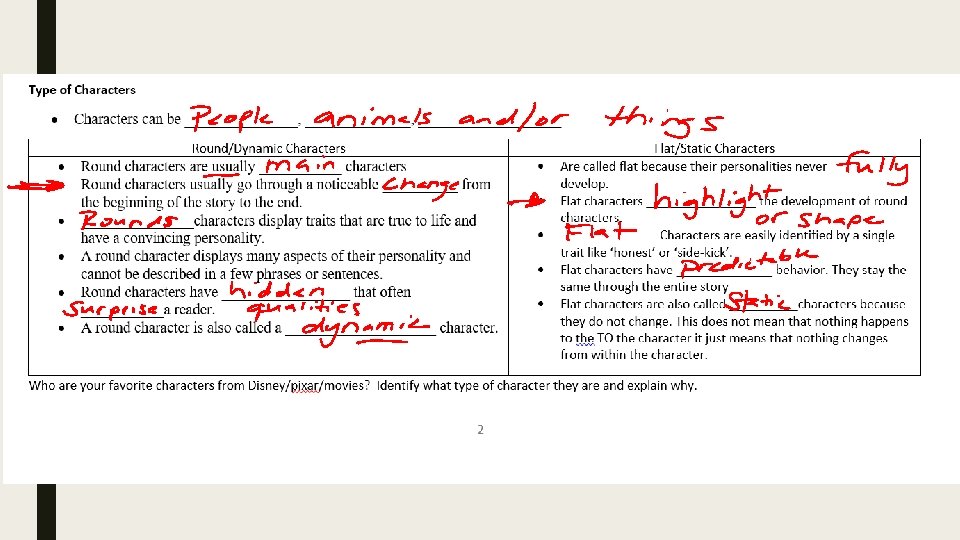 Type of Characters
• Characters can be People, animals and/or things
Round/Dynamic Characters
• Round characters are usually main characters
Round characters usually go through a noticeable change from
the beginning of the story to the end.
• Rounds characters display traits that are true to life and
have a convincing personality.
• A round character displays many aspects of their personality and
cannot be described in a few phrases or sentences.
• Round characters have hidden qualities that often
surprise a reader.
• A round character is also called a dynamic character.
Flat/Static Characters
• Are called flat because their personalities never fully
develop.
Flat characters highlight or shape the development of round
characters.
• Flat Characters are easily identified by a single
trait like 'honest' or 'side-kick'.
• Flat characters have predictable behavior. They stay the
same through the entire story
• Flat characters are also called Static characters because
they do not change. This does not mean that nothing happens
to the TO the character it just means that nothing changes
from within the character.
Who are your favorite characters from Disney/pixar/movies? Identify what type of character they are and explain why.
2